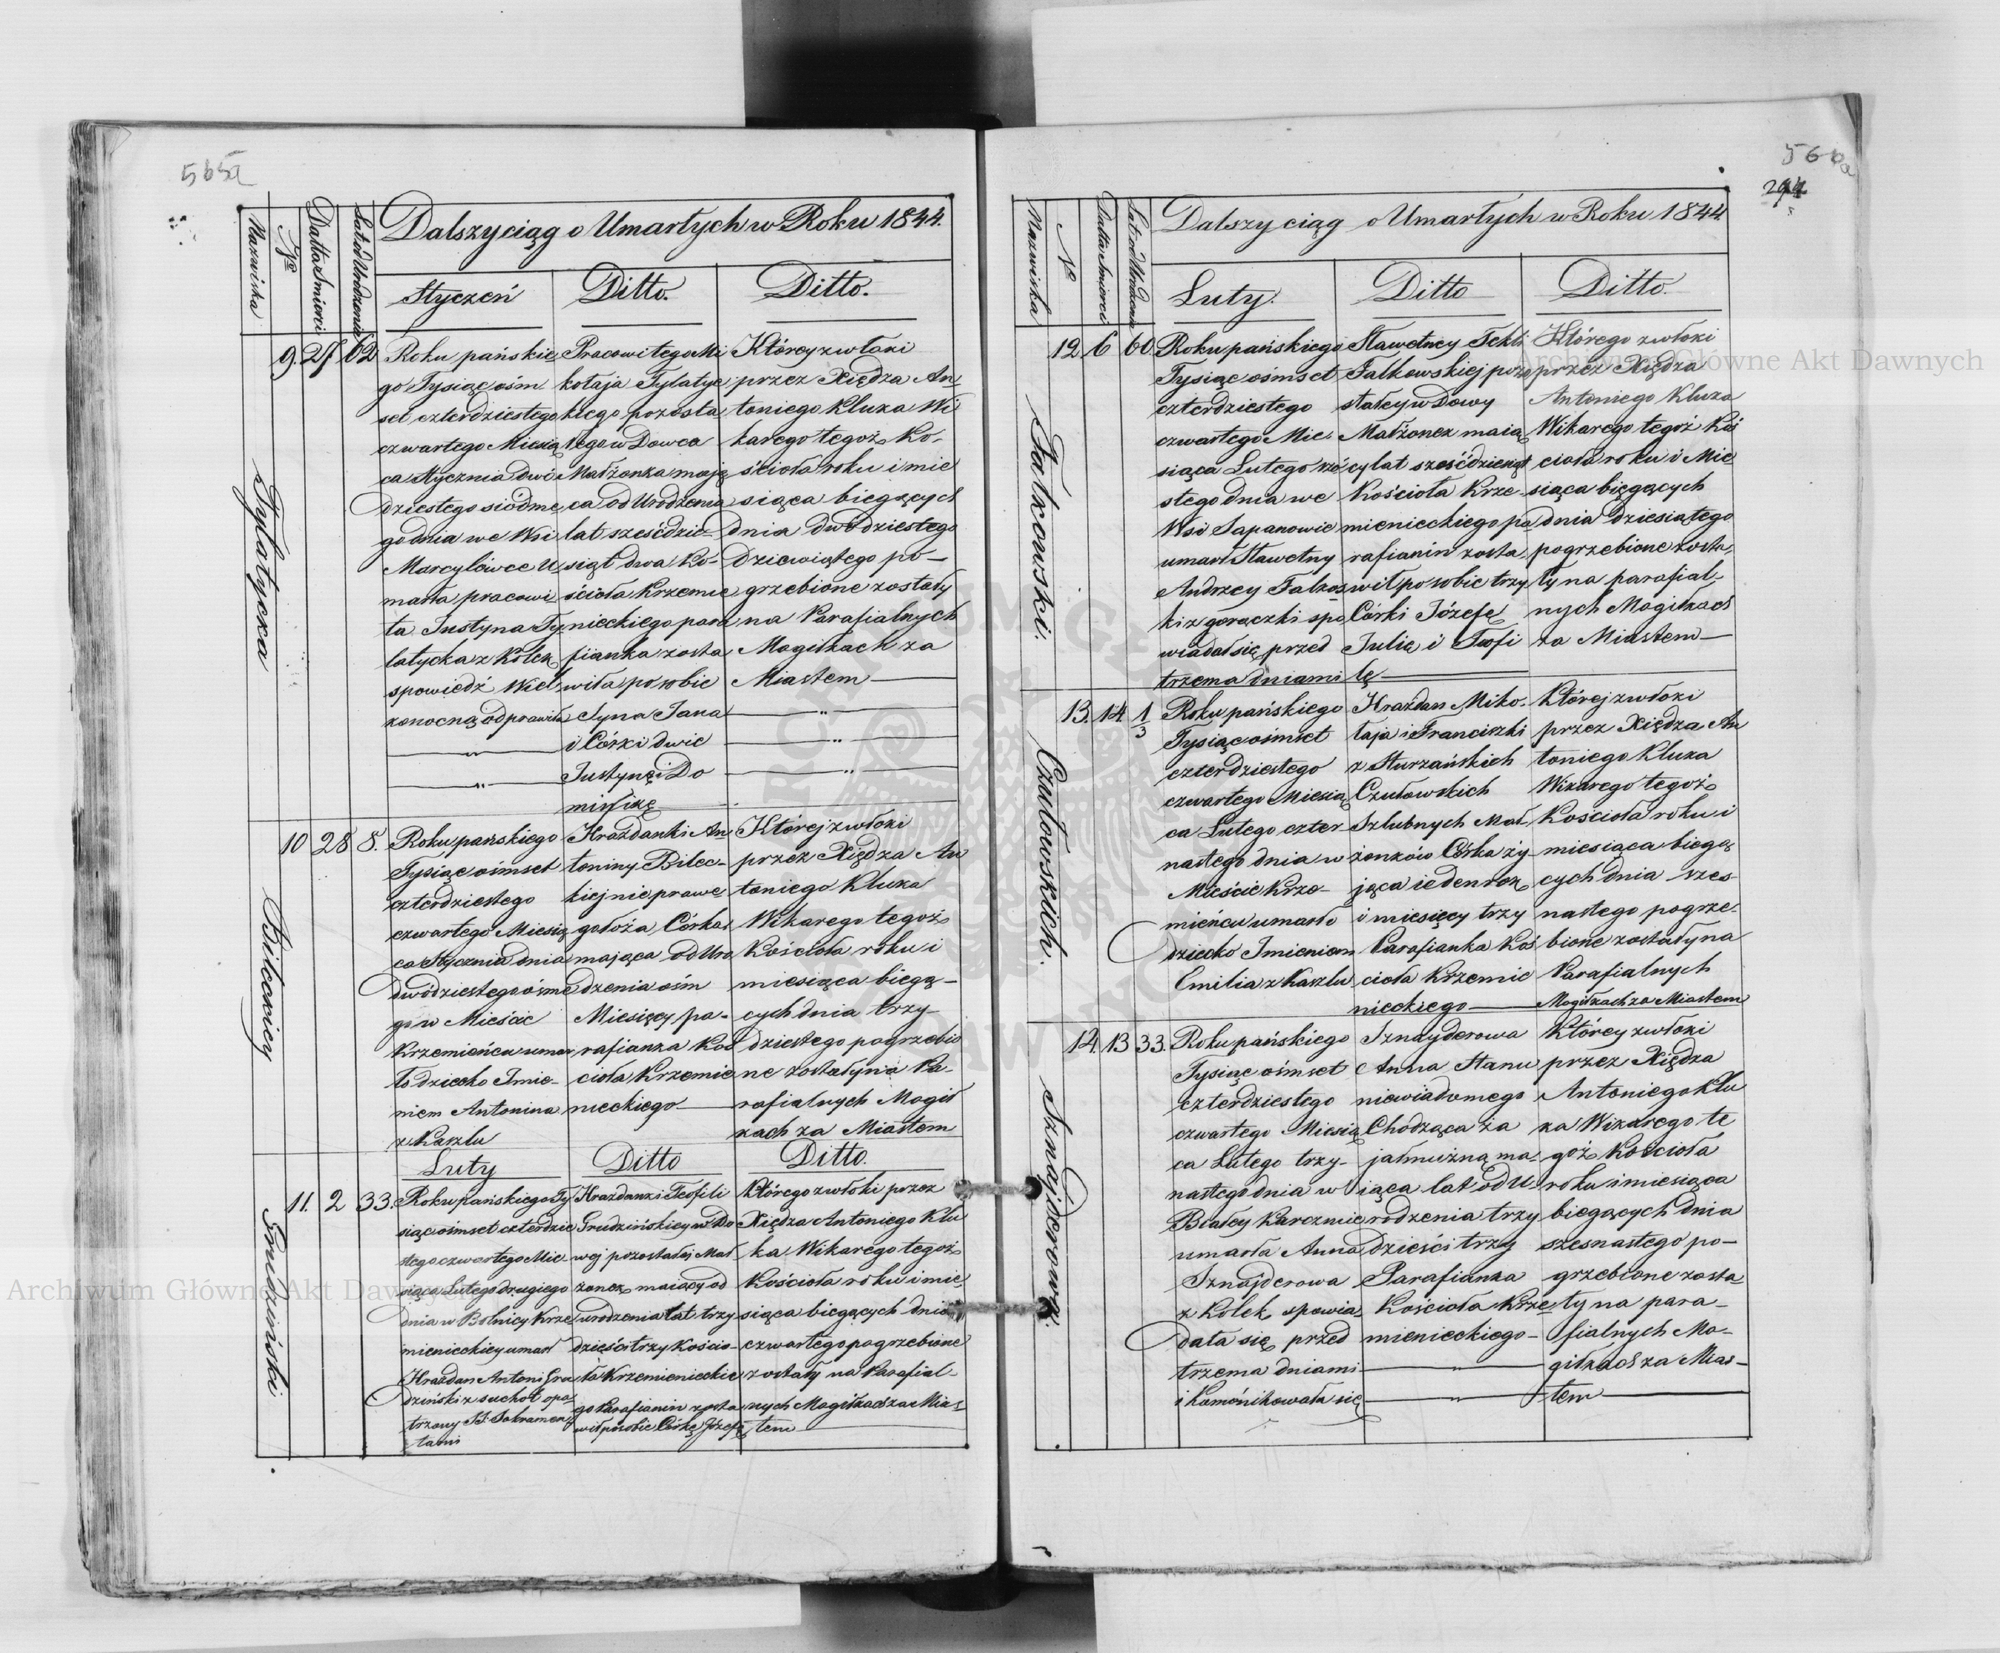 565a
Dalszy ciąg o Umarłych w Roku 1844.
Nazwiska
No
Datta Śmierci
Lat od Urodzenia
Styczeń
Ditto.
Ditto.
Tylatycka
9. 27 62
Roku pańskie
go Tysiąc ośm
set czterdziestego
czwartego Miesią
ca Stycznia dwó
dziestego siódme
go dnia we Wsi
Marcylówce U
marła pracowi
ta Justyna Ty
latycka z Kolek
spowiedź Wiel
konocną odprawiła
Pracowitego Mi
kołaja Tylatyc
kiego pozosta
łego w Dowca
Małżonka mają
ca od Urodzenia
lat sześćdzie-
siąt dwa Ko-
ścioła Krzemie
nieckiego para
fianka zosta
wiła po sobie
Syna Jana
i Córki dwie
Justynę i Do
minikę
Którey zwłoki
przez Xiędza An
toniego Kluka Wi
karego tegoż Ko-
ścioła roku i mie
siąca biegących
dnia dwódziestego
Dziewiątego po-
grzebione zostały
na Parafialnych
Mogiłkach za
Miastem
Bileckiey
10 28 8.
Roku pańskiego
Tysiąc ośmset
czterdziestego
czwartego Miesią
ca Stycznia dnia
dwódziestego ósme
go w Mieście
Krzemieńcu umar
ło dziecko Imie-
niem Antonina
z Kaszlu
Hrażdanki An
toniny Bilec-
kiej nieprawe
gołoża Córka
mająca od Uro
dzenia ośm
Miesięcy pa-
rafianka Koś
cioła Krzemie
nieckiego
Której zwłoki
przez Xiędza An
toniego Kluka
Wikarego tegoż
Kościoła roku i
miesiąca biegą-
cych dnia trzy-
dziestego pogrzebio
ne zostały na Pa-
rafialnych Mogił
kach za Miastem
Luty
Ditto
Ditto.
Grudziński
11. 2 33.
Roku pańskiego Ty
siąc ośmset czterdzie
stego czwartego Mie
siąca Lutego drugiego
dnia w Bolnicy Krze
mienieckiey umarł
Hrażdan Antoni Gru
dziński z suchot opa
trzony SS. Sakramen
tami
Hrażdanki Teofili
Grudzińskiey w Do
wej pozostałej Mał
żonek maiący od
urodzenia lat trzy
dzieści trzy Kościo-
ła Krzemienieckie
go Parafianin zosta
wił po sobie Córkę Józefę
Którego zwłoki przez
Xiędza Antoniego Klu
ka Wikarego tegoż
Kościoła roku i mie
siąca biegących dnia
czwartego pogrzebione
zostały na Parafial-
nych Mogiłkach za Mias
tem
566a
294
Dalszy ciąg o Umarłych w Roku 1844
Nazwiska
No
Datta Śmierci
Lat od Urodzenia
Luty.
Ditto
Ditto.
Falkowski.
12. 6 60
Roku pańskiego
Tysiąc ośmset
czterdziestego
czwartego Mie
siąca Lutego szó
stego dnia we
Wsi Sapanowie
umarł Sławetny
Andrzey Falkows
ki z gorączki spo
wiadał się przed
trzema dniami
Sławetney Tekli
Falkowskiej pozo
stałey w Dowy
Małżonek maią
cy lat sześćdziesiąt
Kościoła Krze
mienieckiego pa
rafianin zosta
wił po sobie trzy
Córki Józefę
Julię i Teofi
lę
Którego zwłoki
przez Xiędza
Antoniego Kluka
Wikarego tegoż Koś
cioła roku i Mie
siąca biegących
dnia Dziesiątego
pogrzebione zosta
ły na parafial-
nych Mogiłkach
za Miastem
Czułowskich.
13. 14 1/3
Roku pańskiego
Tysiąc ośmset
czterdziestego
czwartego Miesią
ca Lutego czter
nastego dnia w
Mieście Krze-
mieńcu umarło
dziecko Imieniem
Emilia z Kaszlu
Hrażdan Miko-
łaja i Franciszki
z Sturzańskich
Czułowskich
Szlubnych Mał
żonków Córka ży
jąca ieden rok
i miesięcy trzy
Parafianka Koś
cioła Krzemie
nieckiego
Której zwłoki
przez Xiędza An
toniego Kluka
Wikarego tegoż
Kościoła roku i
miesiąca biegą
cych dnia szes-
nastego pogrze-
bione zostały na
Parafialnych
Mogiłkach za Miastem
Sznajderowa.
14. 13 33.
Roku pańskiego
Tysiąc ośmset
czterdziestego
czwartego Miesią
ca Lutego trzy-
nastego dnia w
Białey Karczmie
umarła Anna
Sznajderowa
z Kolek spowia
dała się przed
trzema dniami
i Komónikowała się
Sznayderowa
Anna Stanu
niewiadomego
Chodząca za
jałmużną ma-
iąca lat od U
rodzenia trzy
dzieści trzy
Parafianka
Kościoła Krze
mienieckiego-
Którey zwłoki
przez Xiędza
Antoniego Klu
ka Wikarego te
goż Kościoła
roku i miesiąca
biegących dnia
szesnastego po-
grzebione zosta
ły na para-
fialnych Mo-
giłkach za Mias-
tem
Archiwum Główne Akt Dawnych
Archiwum Główne Akt Dawnych